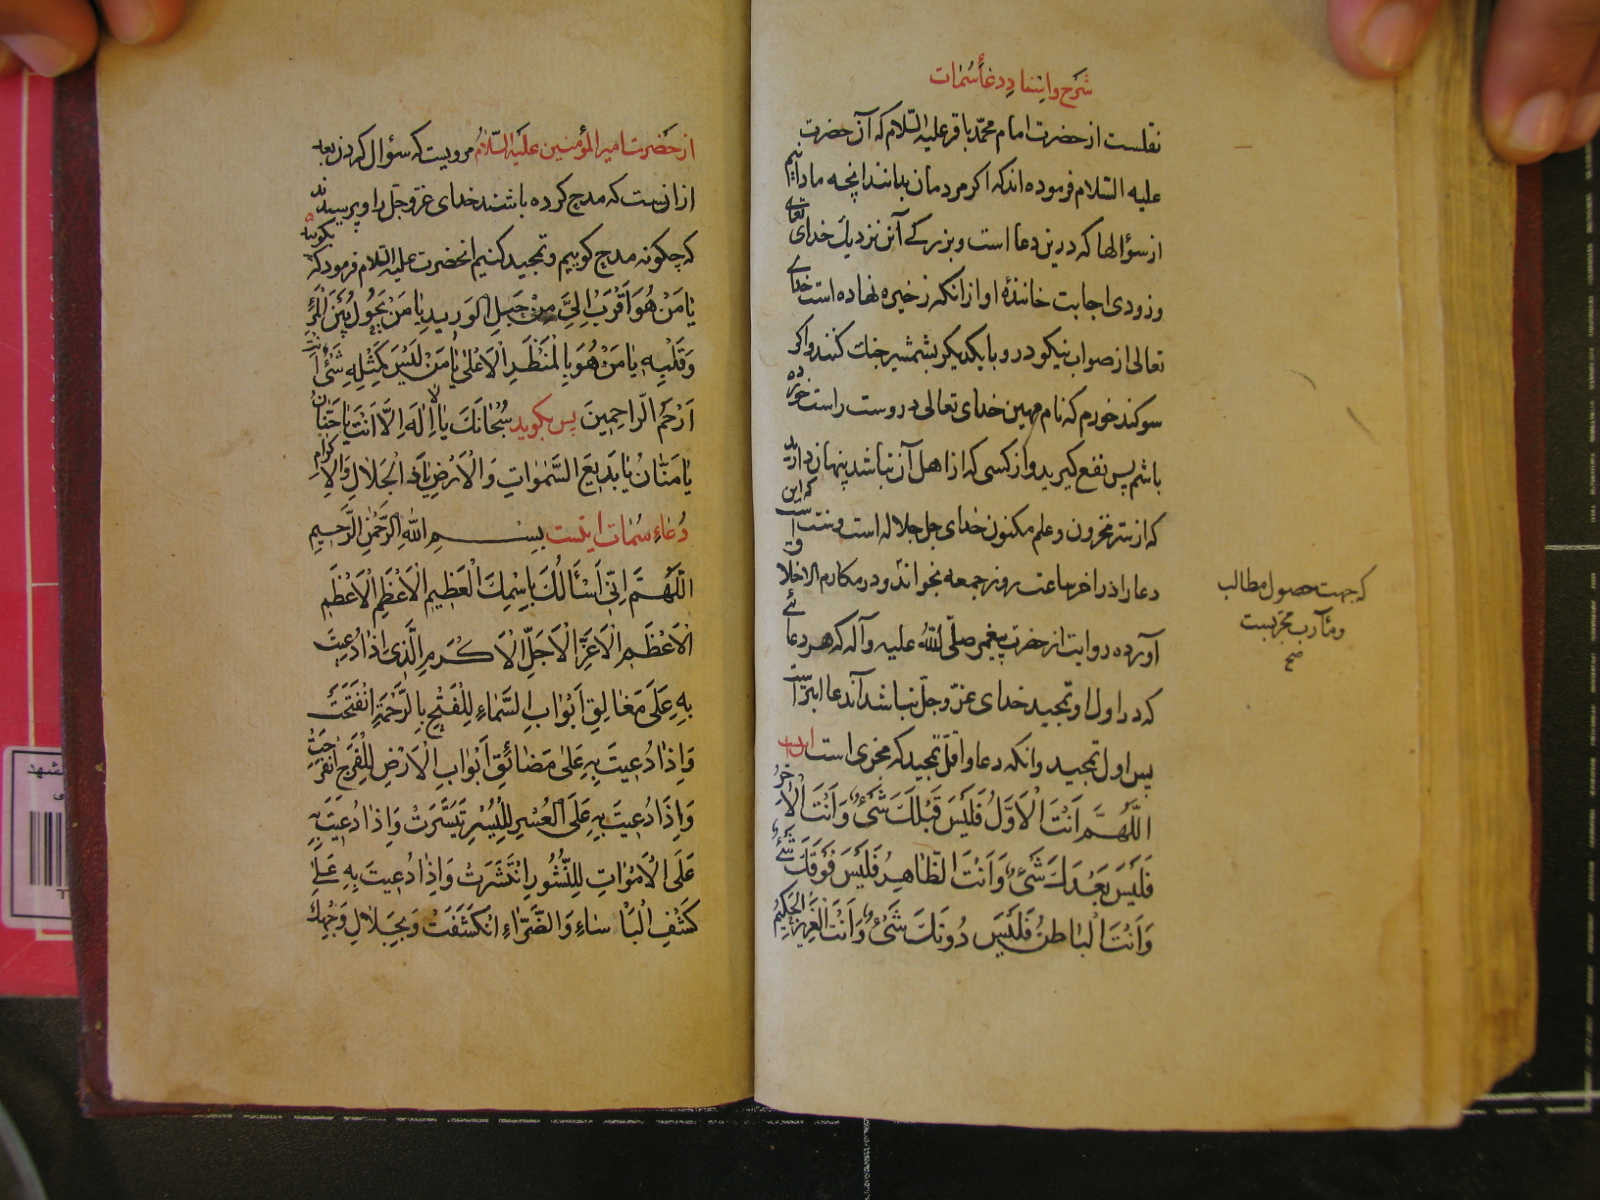 شرح و اسناد دعا سمات
نقلست از حضرت امام محمّد باقر علیه السّلام که آن حضرت
علیه السّلام فرموده اند که اکر مردمان بدانند آنچه ما دانیم
از سؤالها که درین دعا است و بزرکے آن نزدیک خدای تعالی
و زودی اجابت خانندهٔ او از انکه زخیره نهاده است خدای
تعالی از صواب نیکو درو با یکدیکر بشمشیر جنک کنند و اکر
سوکند خورم که نام مهین خدای تعالی دروست راست خورده
باشم پس نفع کیرید و از کسی که از اهل آن نباشد پنهان دارید
که از سر مخزون و علم مکنون خدای جل جلاله است و که این
دعا را در اخر ساعت روز جمعه بخوانند و در مکارم الاخلاق
آورده روایت از حضرت پیغمبر صلّی الله علیه و آله که هر دعائے
که در اول او تمجید خدای عزّ و جلّ نباشد آندعا ابتر است
پس اول تمجید وانکه دعا و اقلّ تمجید که مجزی است اینست
اللّٰهُمَّ اَنْتَ الْاَوَّلُ فَلَیْسَ قَبْلَكَ شَیْءٌ وَ اَنْتَ الْاٰخِرُ
فَلَیْسَ بَعْدَكَ شَیْءٌ وَ اَنْتَ الظّاهِرُ فَلَیْسَ فَوْقَكَ شَیْءٌ
وَ اَنْتَ الْبٰاطِنُ فَلَیْسَ دُونَكَ شَیْءٌ وَ اَنْتَ الْعَزِیزُ الْحَکِیمُ
که جهت حصول مطالب
و مآرب مجرّبست
صح
از حَضرت امیر المؤمنین عَلَیْهِ السَّلامُ مرویست که سؤال کردند
از ان‌ست که مدح کرده باشند خدای عزّ و جلّ را و پرسیدند
که چکونه مدح کوییم و تمجید کنیم انحضرت علیه السّلام فرمود که بکویید
یٰا مَنْ هُوَ اَقْرَبُ اِلَیَّ مِنْ حَبْلِ الْوَرِیدِ یٰا مَنْ یَحُولُ بَیْنَ الْمَرْءِ
وَ قَلْبِهِ یٰا مَنْ هُوَ بِالْمَنْظَرِ الْاَعْلیٰ یٰا مَنْ لَیْسَ کَمِثْلِهِ شَیْءٌ
اَرْحَمَ الرّاحِمِینَ پس بکوید سُبْحٰانَكَ یٰا لٰا اِلٰهَ اِلّا اَنْتَ یٰا حَنّٰانُ
یٰا مَنّٰانُ یٰا بَدِیعَ السَّمٰوٰاتِ وَ الْاَرْضِ یٰا ذَا الْجَلٰالِ وَ الْاِکْرٰامِ
دُعٰاءِ سُمٰات اینست بِسْمِ اللّٰهِ الرَّحْمٰنِ الرَّحِیمِ
اَللّٰهُمَّ اِنّی اَسْئَالُكَ بِاسْمِكَ الْعَظِیمِ الْاَعْظَمِ الْاَعْظَمِ
الْاَعْظَمِ الْاَعَزِّ الْاَجَلِّ الْاَکْرَمِ الَّذی اِذٰا دُعِیتَ
بِهِ عَلیٰ مَغٰالِقِ اَبْوٰابِ السَّمٰاءِ لِلْفَتْحِ بِالرَّحْمَةِ انْفَتَحَتْ
وَ اِذٰا دُعِیتَ بِهِ عَلیٰ مَضٰائِقِ اَبْوٰابِ الْاَرْضِ لِلْفَرَجِ انْفَرَجَتْ
وَ اِذٰا دُعِیتَ بِهِ عَلَی الْعُسْرِ لِلْیُسْرِ تَیَسَّرَتْ وَ اِذٰا دُعِیتَ بِهِ
عَلَی الْاَمْوٰاتِ لِلنُّشُورِ انْتَشَرَتْ وَ اِذٰا دُعِیتَ بِهِ عَلیٰ
کَشْفِ الْبَاْسٰاءِ وَ الضَّرّٰاءِ انْکَشَفَتْ وَ بِجَلٰالِ وَجْهِكَ